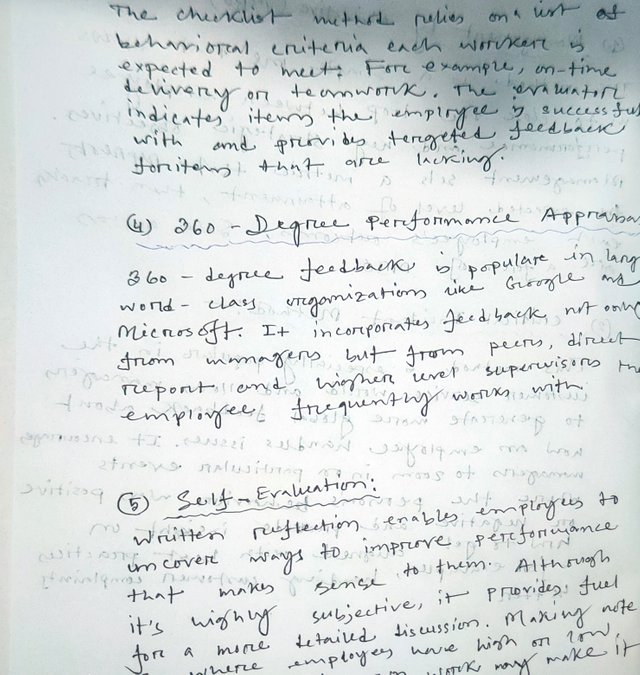 The checklist method relies on a list of
behavioral criteria each worker is
expected to meet: For example, on-time
delivery or teamwork. The evaluator
indicates items the employee is successful
with and provides targeted feedback
for items that are lacking.
(4) 360 - Degree Performance Appraisa
360 - degree feedback is populare in larg
world - class organizations like Google and
Microsoft. It incorporates feedback not only
from managers but from peers, direct
report and higher level supervisors the
employee frequently works with.
(5) Self - Evaluation:
Written reflection enables employees to
uncover ways to improve performance
that makes sense to them. Although
it's highly subjective, it provides fuel
for a more detailed discussion. Making note
where employees have high or low
work may make it